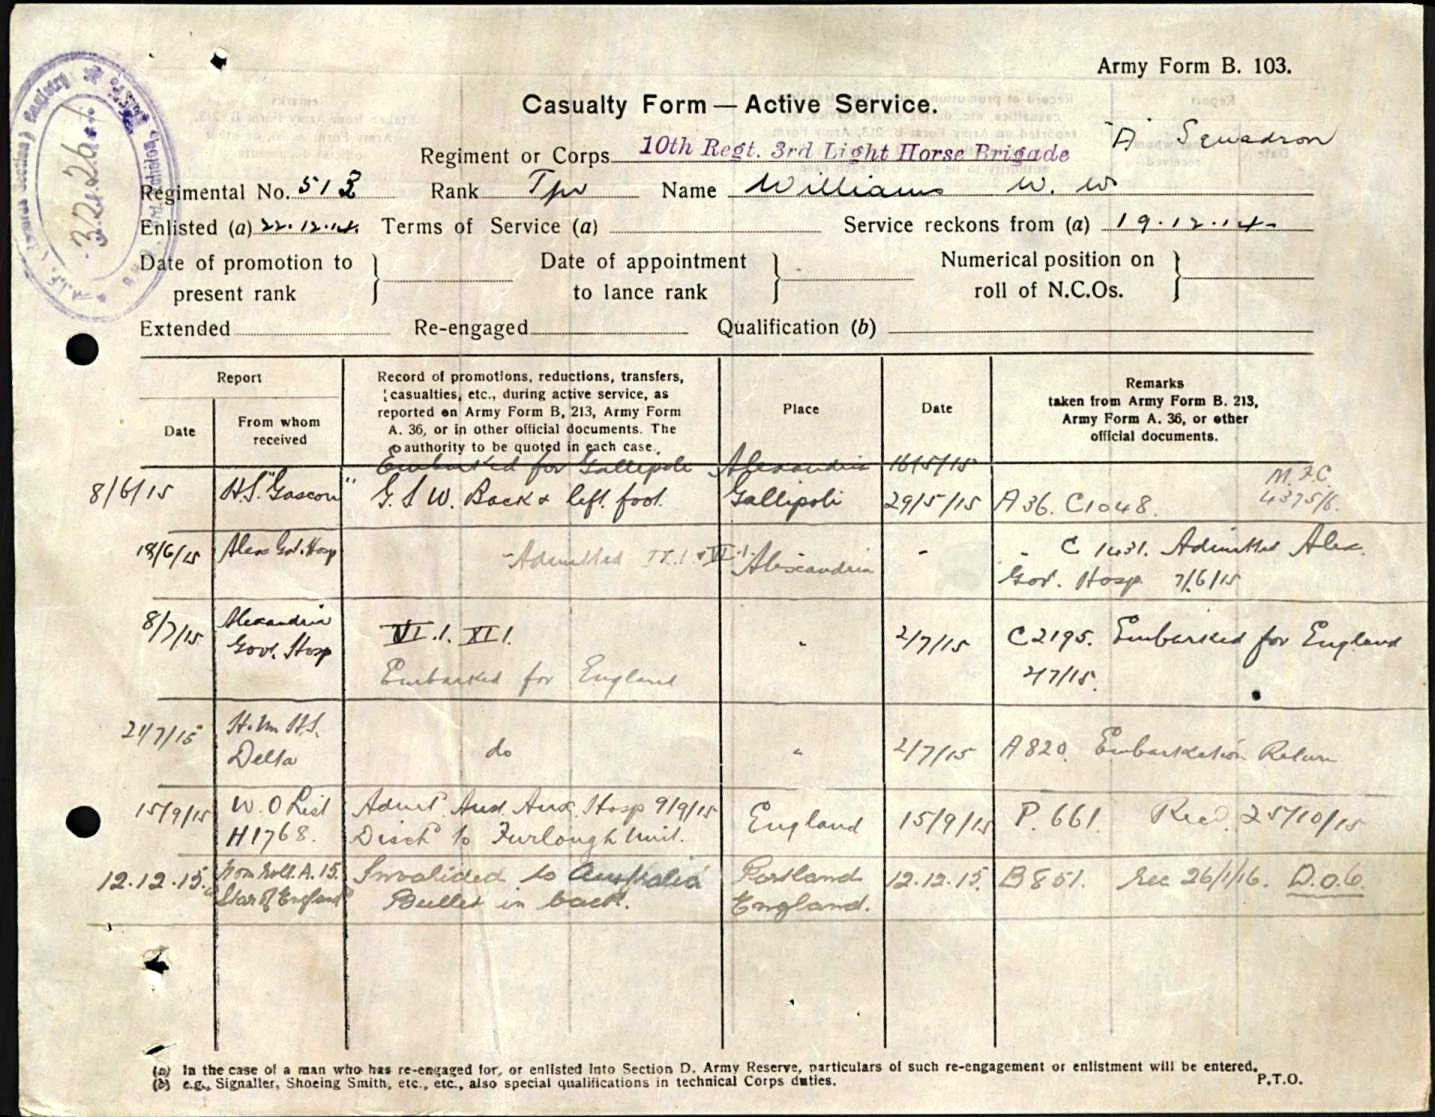 Army Form B. 103.
Casualty Form — Active Service.
"A" Squadron
Regiment or Corps 10th Regt. 3rd Light Horse Brigade
Regimental No. 513 Rank Tpr Name Williams W. W
Enlisted (a) 22.12.14. Terms of Service (a) Service reckons from (a) 19.12.14
Date of promotion to present rank } Date of appointment to lance rank } Numerical position on roll of N.C.Os. }
Extended Re-engaged Qualification (b)
Report
Date
From whom received
Record of promotions, reductions, transfers,
casualties, etc., during active service, as
reported on Army Form B, 213, Army Form
A. 36, or in other official documents. The
authority to be quoted in each case.
Place
Date
Remarks
taken from Army Form B. 213,
Army Form A. 36, or other
official documents.
Embarked for Gallipoli Alexandria 16/5/15
8/6/15 H.S. "Gascon" G.S.W. Back & left foot. Gallipoli 29/5/15 A36. C1048. M.F.C.
18/6/15 Alex Gov. Hosp Admitted VI.1. Alexandria - C 1431. Admitted Alex.
Gov. Hosp 7/6/15
8/7/15 Alexandria Gov. Hosp VI.1. XI1. " 2/7/15 C2195. Embarked for England
Embarked for England 2/7/15.
21/7/15 H.M H.S. Delta do " 2/7/15 A820. Embarkation Return
15/9/15 W.O List H1768. Admit Aus. Aux. Hosp 9/9/15 England 15/9/15 P. 661. Recd. 25/10/15
Disch to Furlough Unit.
12.12.15 Nom Roll A. 15. Star of England Invalided to Australia Portland England. 12.12.15. B851. Rec 26/1/16. D.O.6.
Bullet in back.
(a) In the case of a man who has re-engaged for, or enlisted into Section D. Army Reserve, particulars of such re-engagement or enlistment will be entered.
(b) e.g., Signaller, Shoeing Smith, etc., etc., also special qualifications in technical Corps duties.
P.T.O.